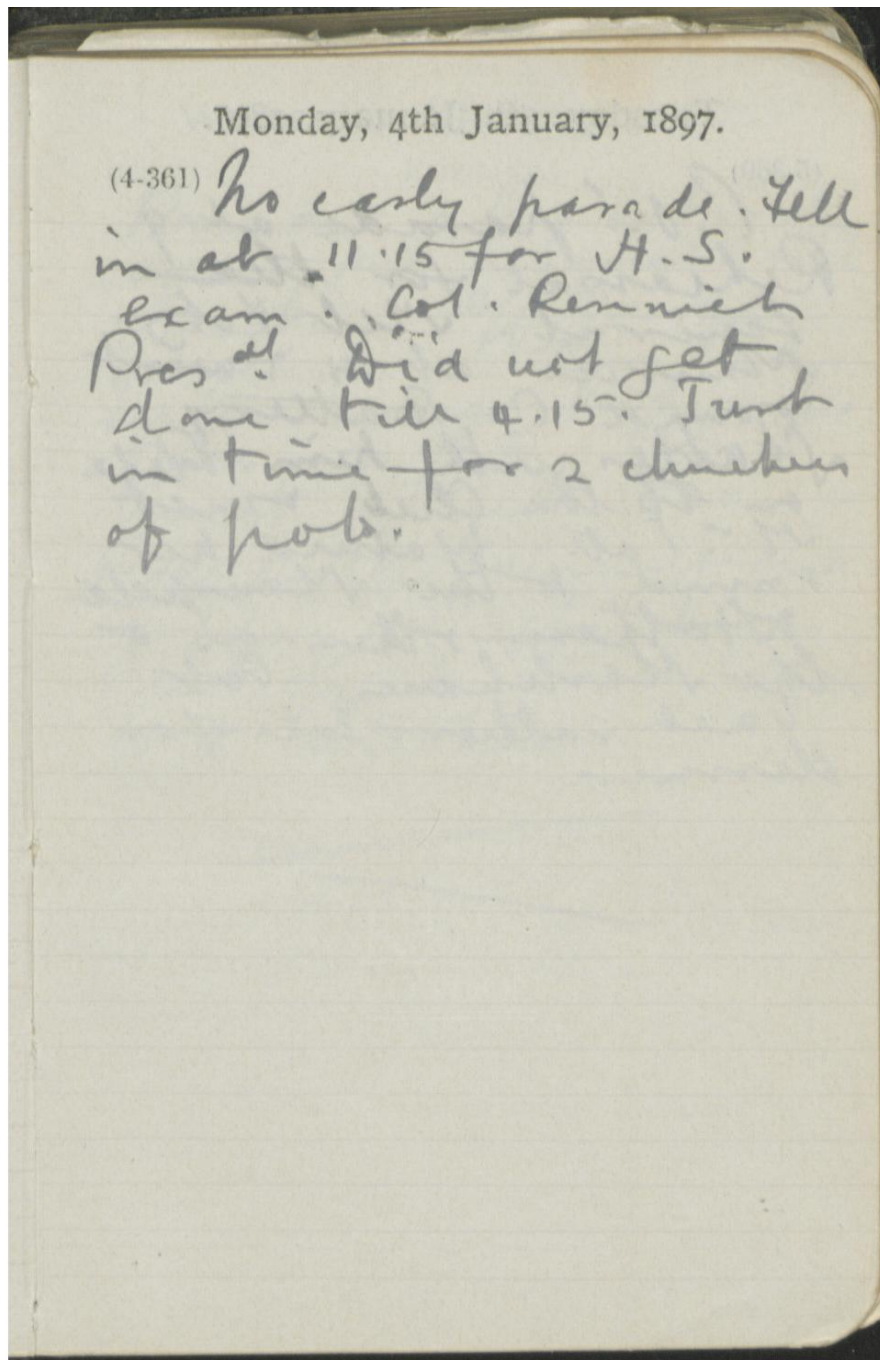 Monday, 4th January, 1897.
(4-361) No early parade. Fell
in at 11.15 for H.S.
exam. Col. Rennick
Pres dt. Did not get
done till 4.15. Just
in time for 2 chuckers
of polo.